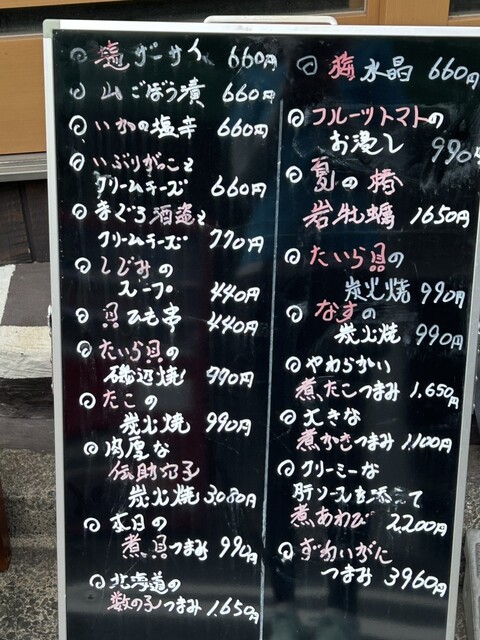 ◎塩ザーサイ 660円
◎山ごぼう漬 660円
◎いかの塩辛 660円
◎いぶりがっこと
クリームチーズ 660円
◎まぐろ酒盗と
クリームチーズ 770円
◎しじみの
スープ 440円
◎貝ひも串 440円
◎たいら貝の
磯辺焼き 990円
◎たこの
炭火焼 990円
◎肉厚な
伝助穴子
炭火焼 3,080円
◎本日の
煮貝つまみ 990円
◎北海道の
数の子つまみ 1,650円
◎梅水晶 660円
◎フルーツトマトの
お浸し 990円
◎夏の椿
岩牡蠣 1650円
◎たいら貝の
炭火焼 990円
◎なすの
炭火焼 990円
◎やわらかい
煮たこつまみ 1,650円
◎大きな
煮かきつまみ 1,100円
◎クリーミーな
肝ソースを添えて
煮あわび 2,200円
◎ずわいがに
つまみ 3960円